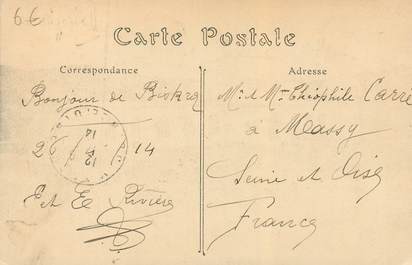 6€
Carte Postale
Correspondance
Bonjour de Biskra
26 14
Et E Rivière
Adresse
Mr et Mme Théophile Carré
à Massy
Seine et Oise
France